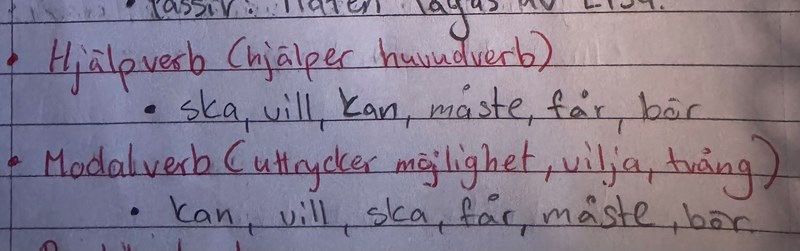 • Passiv: Maten lagas av Lisa.
• Hjälpverb (hjälper huvudverb)
• ska, vill, kan, måste, får, bör
• Modalverb (uttrycker möjlighet, vilja, tvång)
• kan, vill, ska, får, måste, bör